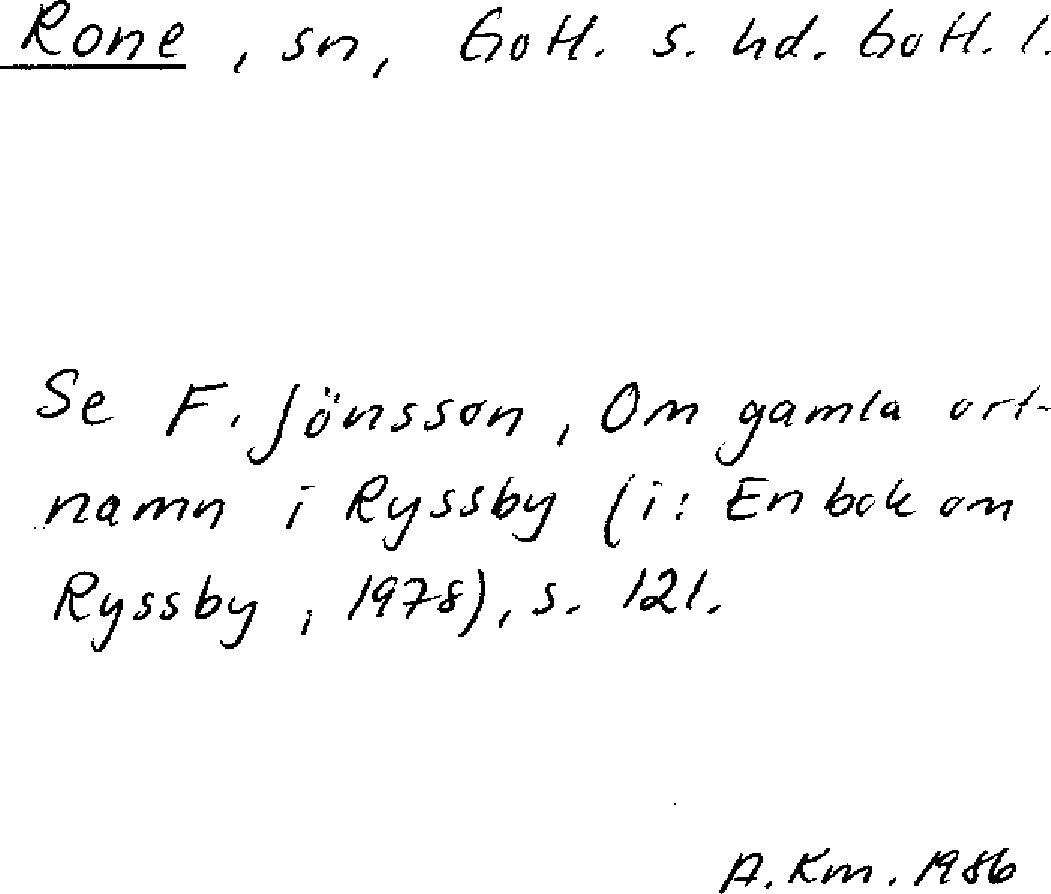 Rone, sn, Gotl. s. hd. Gotl. l.
Se F. Jönsson, Om gamla ort-
namn i Ryssby (i: En bok om
Ryssby, 1978), s. 121.
A. Km. 1986